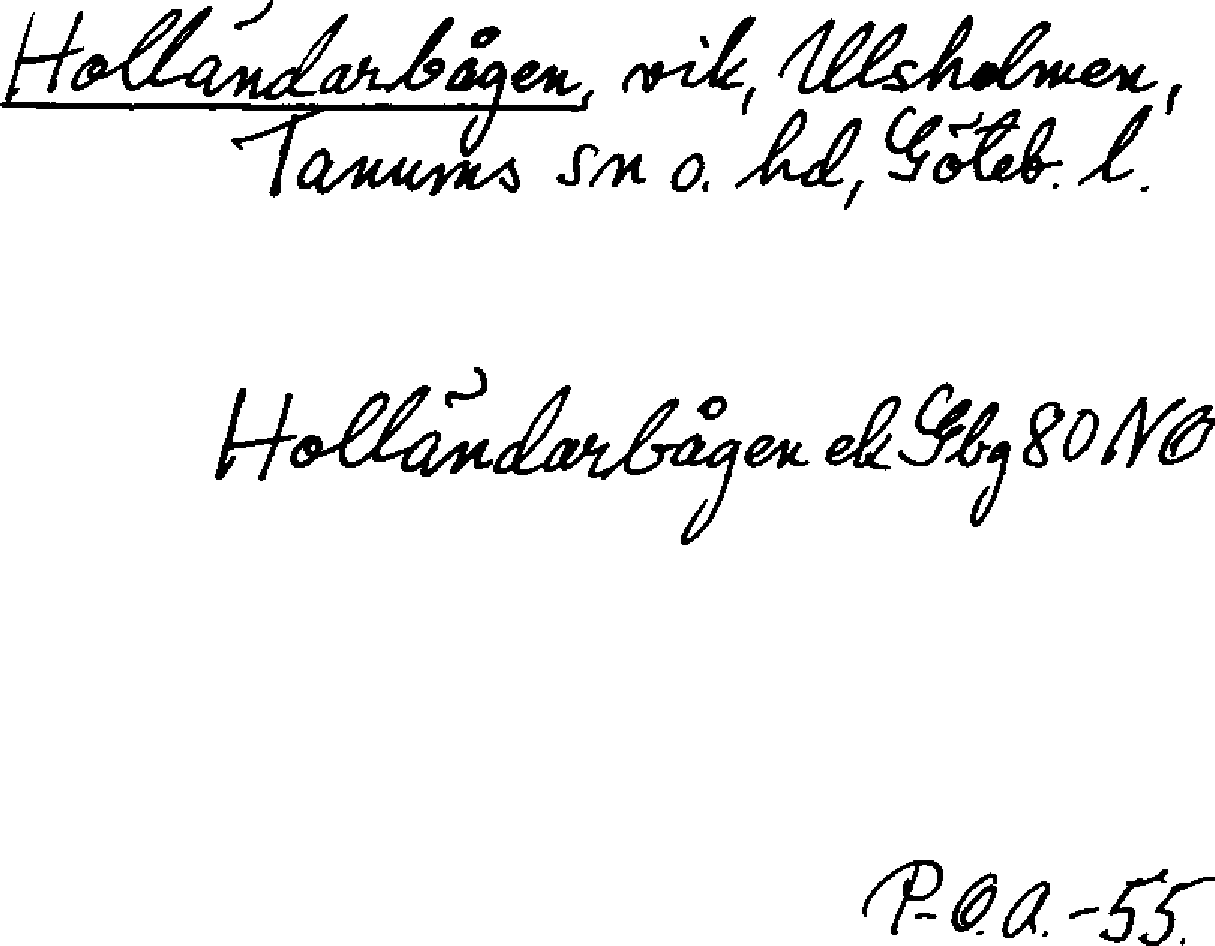 Holländarbågen, vik, Ulsholmen,
Tanums sn o. hd, Göteb. l.
Holländarbågen ek Gbg 80 NO
P-O.A. -55.